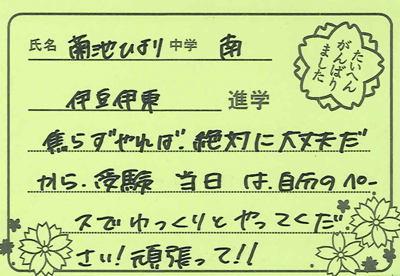 氏名 菊池ひより 中学 南
伊豆伊東 進学
たいへん
がんばり
ました
焦らずやれば、絶対に大丈夫だ
から、受験 当日 は、自分のペー
スでゆっくりとやってくだ
さい!頑張って!!